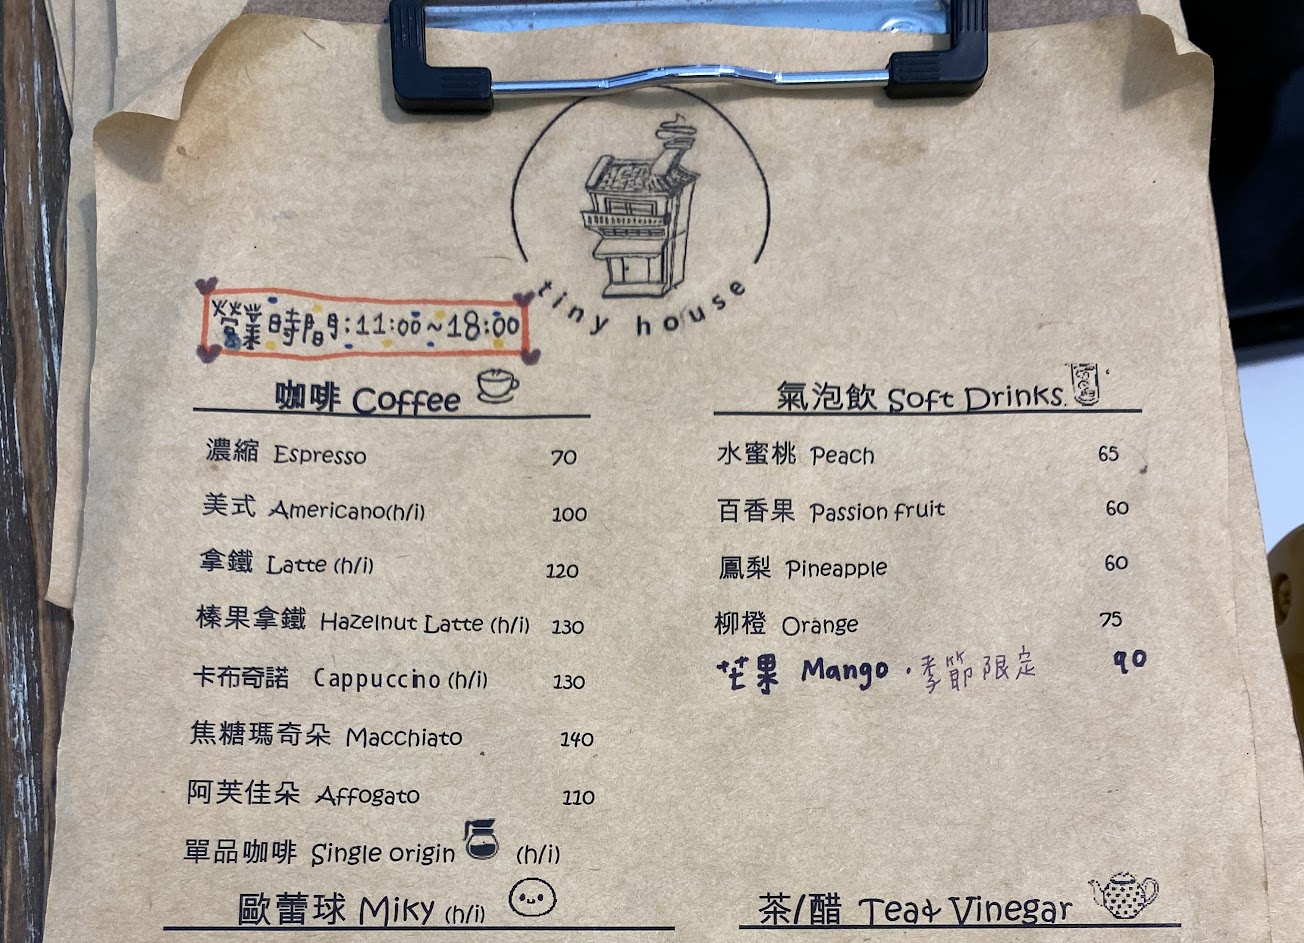 tiny house
營業時間:11:00~18:00
咖啡 Coffee
濃縮 Espresso 70
美式 Americano(h/i) 100
拿鐵 Latte (h/i) 120
榛果拿鐵 Hazelnut Latte (h/i) 130
卡布奇諾 Cappuccino (h/i) 130
焦糖瑪奇朵 Macchiato 140
阿芙佳朵 Affogato 110
單品咖啡 Single origin (h/i)
歐蕾球 Miky (h/i)
氣泡飲 Soft Drinks
水蜜桃 Peach 65
百香果 Passion fruit 60
鳳梨 Pineapple 60
柳橙 Orange 75
芒果 Mango · 季節限定 90
茶/醋 Tea& Vinegar